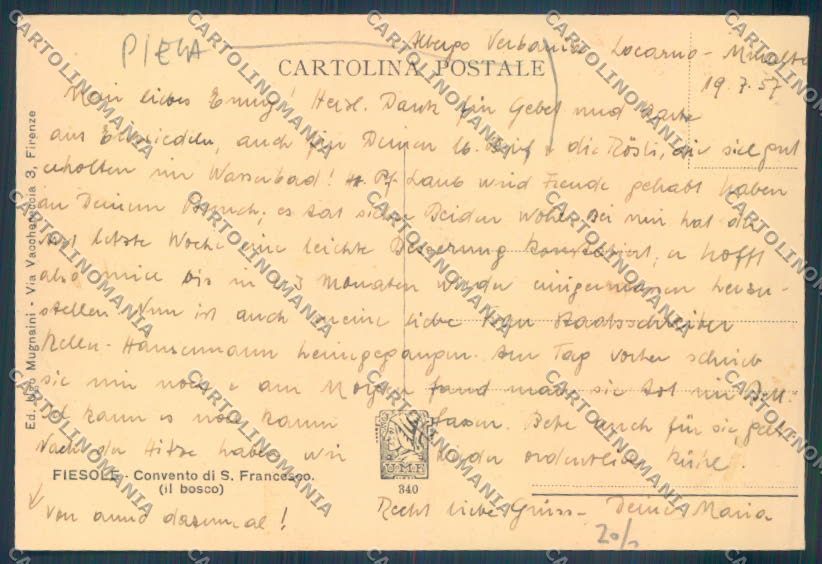 PIEGA
Albergo Verbania Locarno-Minusio
CARTOLINA POSTALE
19.7.57
Mein liebes Emmy! Herzl. Dank für Gebet und Karte
aus Einsiedeln, auch für Deinen lb. Brief + die Rösli, die sich gut
erholten im Wasserbad! Pf. Laub wird Freude gehabt haben
an Deinem Besuch; es tat sicher Beiden wohl. Bei mir hat der
Arzt letzte Woche eine leichte Besserung konstatiert, er hofft
also mich bis in 3 Monaten wieder einigermassen herzu-
stellen. Nun ist auch meine liebe Frau Staatsschreiber
Keller-Hansemann heimgegangen. Am Tag vorher schrieb
sie mir noch + am Morgen fand man sie tot im Bett.
Ich kann es noch kaum fassen. Bete auch für sie, gelt.
Nach der Hitze haben wir wieder ordentlich kühl.
Recht liebe Grüsse Deine Maria
FIESOLE - Convento di S. Francesco.
(il bosco)
von anno dazumal!
UMF
340
20/-
Ed. Ugo Mugnaini - Via Vacchereccia 3, Firenze
CARTOLINOMANIA